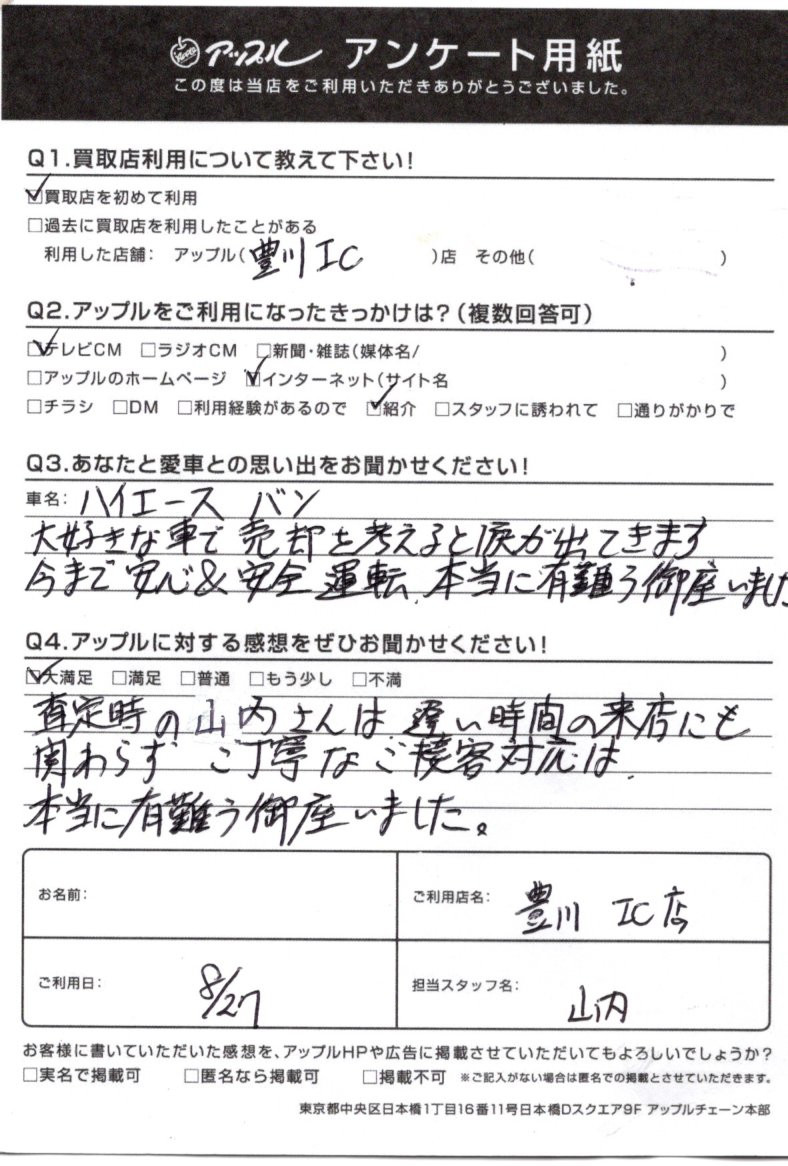 アップル アンケート用紙
この度は当店をご利用いただきありがとうございました。
Q1.買取店利用について教えて下さい!
☑買取店を初めて利用
□過去に買取店を利用したことがある
利用した店舗: アップル(豊川IC)店 その他( )
Q2.アップルをご利用になったきっかけは?(複数回答可)
☑テレビCM □ラジオCM □新聞・雑誌(媒体名/ )
□アップルのホームページ ☑インターネット(サイト名 )
□チラシ □DM □利用経験があるので ☑紹介 □スタッフに誘われて □通りがかりで
Q3.あなたと愛車との思い出をお聞かせください!
車名: ハイエース バン
大好きな車で売却を考えると涙が出てきます
今まで安心&安全運転、本当に有難う御座いました
Q4.アップルに対する感想をぜひお聞かせください!
☑大満足 □満足 □普通 □もう少し □不満
査定時の山内さんは遅い時間の来店にも
関わらず ご丁寧なご接客対応は、
本当に有難う御座いました。
お名前:
ご利用店名: 豊川 IC店
ご利用日: 8/27
担当スタッフ名: 山内
お客様に書いていただいた感想を、アップルHPや広告に掲載させていただいてもよろしいでしょうか?
□実名で掲載可 □匿名なら掲載可 □掲載不可 ※ご記入がない場合は匿名での掲載とさせていただきます。
東京都中央区日本橋1丁目16番11号日本橋Dスクエア9F アップルチェーン本部